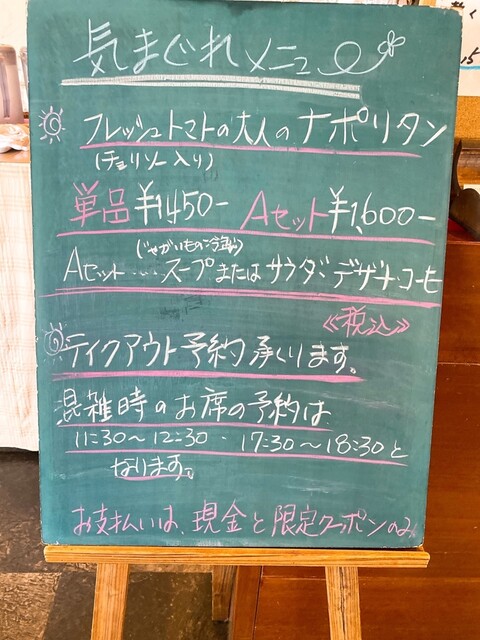 気まぐれメニュー
フレッシュトマトの大人のナポリタン
(チョリソー入り)
単品 ¥1450- Aセット ¥1,600-
(じゃがいもの冷製)
Aセット……スープまたはサラダ・デザート・コーヒー
《税込》
テイクアウト予約承ります。
混雑時のお席の予約は
11:30〜12:30・17:30〜18:30と
なります。
お支払いは、現金と限定クーポンのみ